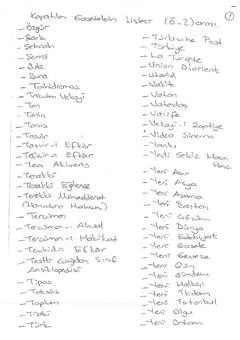 Kapatılan Gazetelerin Listesi (Ö-Z) arası.
1
- Özgür
- Şark
- Şehrah
- Şems
- Şule
- Şura
- Tahidromos
- Takvim Vekayi
- Tan
- Tanin
- Taros
- Tasvir
- Tasvir-i Efkâr
- Tea Alimens
- Terakki
- Terakki Eğlence
- Terakki Muhadderat
- Tercüman
- Tercüman-ı Ahval
- Tercüman-ı Hakikat
- Tevhid-i Efkâr
- Teşhir Çağdan Sınıf
Ansiklopedisi
- Tipos
- Toksöz
- Toplum
- Türk
- Türkische Post
- Türkiye
- La Turquie
- Union Diorient
- Utarid
- Vakit
- Vatan
- Vatandaş
- Vazife
- Vekayi-i Zaptiye
- Video Sinema
- Yankı
- Yedi Sekiz Hasan
Paşa
- Yeni Asır
- Yeni Asya
- Yeni Adana
- Yeni Baştan
- Yeni Çözüm
- Yeni Dünya
- Yeni Edebiyat
- Yeni Gazete
- Yeni Gazete
- Yeni Gün
- Yeni Gündem
- Yeni Halkçı
- Yeni İkdam
- Yeni İstanbul
- Yeni Olgu
- Yeni Ortam